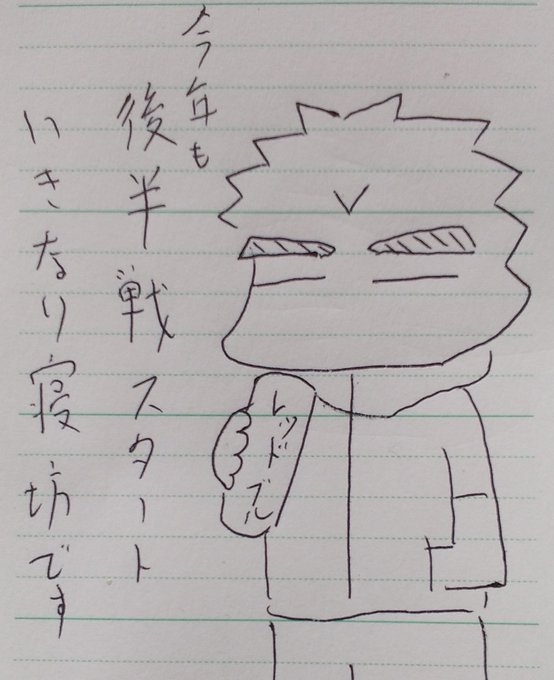 今年も
後半戦スタート
いきなり寝坊です
レッドブル